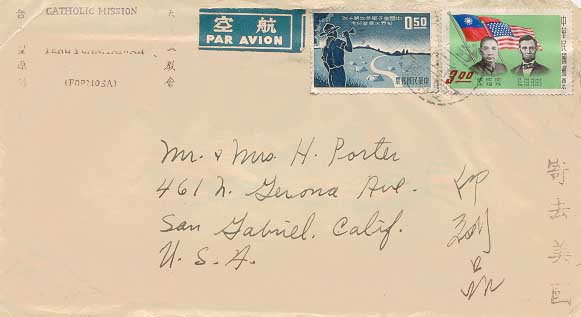 CATHOLIC MISSION
(FORMOSA)
教會
航空
PAR AVION
0.50
中華民國郵票
中華民國郵票
3.00
Mr. & Mrs. H. Porter
461 N. Gerona Ave.
San Gabriel, Calif.
U. S. A.
印刷品
寄去美国